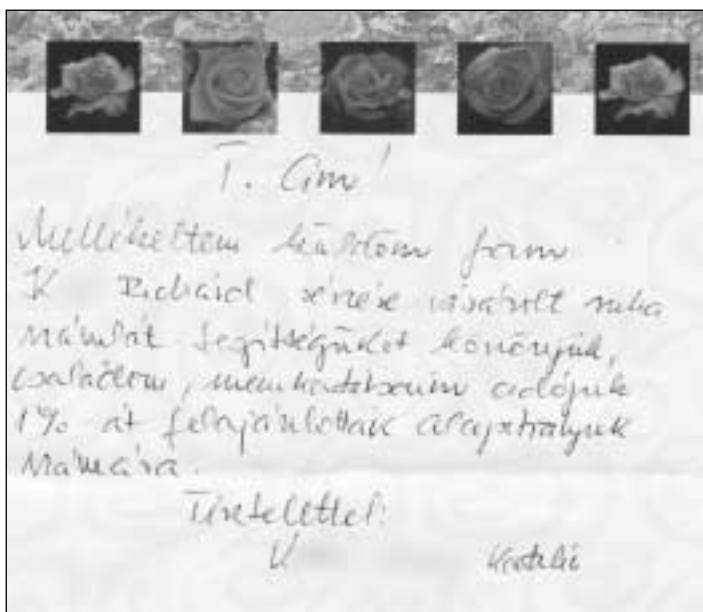 T. Cím!
Mellékelten küldöm fiam
K Richárd részére vásárolt ruha
számlát segítségüket köszönjük,
családom, munkatársaim adójuk
1% át felajánlották alapítványuk
számára.
Tisztelettel:
K Katalin